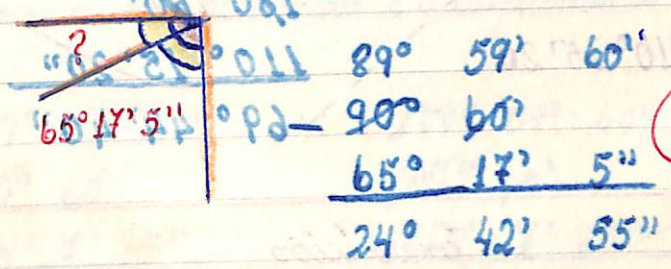 ?
65° 17' 5"
89° 59' 60"
- 90° 60'
65° 17' 5"
24° 42' 55"